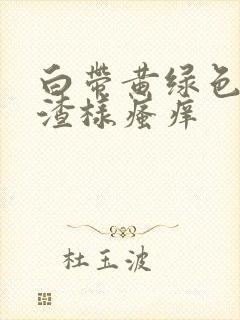 白带黄绿色
渣样瘙痒
杜玉波